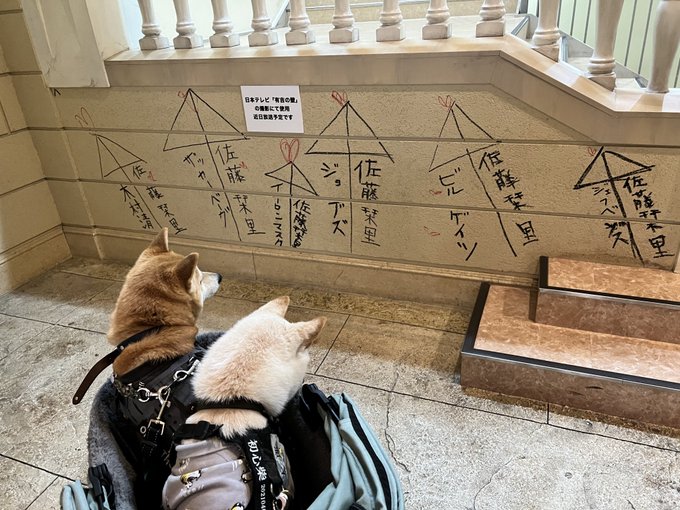 日本テレビ「有吉の壁」
の撮影にて使用
近日放送予定です
木村清
佐藤栞里
ザッカーバーグ
佐藤栞里
イーロンマスク
佐藤栞里
ジョブズ
佐藤栞里
ビルゲイツ
佐藤栞里
ジェフベゾス
佐藤栞里
初心柴